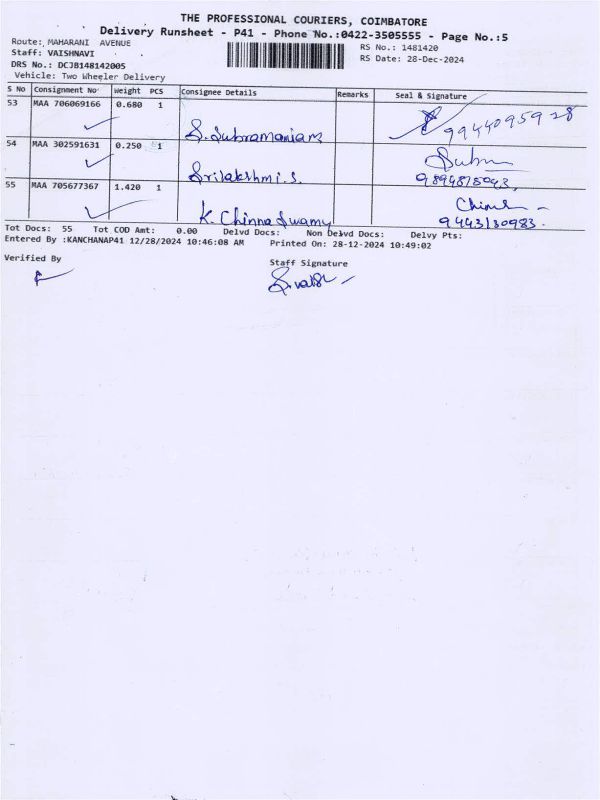 THE PROFESSIONAL COURIERS, COIMBATORE
Delivery Runsheet - P41 - Phone No.:0422-3505555 - Page No.:5
Route: MAHARANI AVENUE
RS No.: 1481420
Staff: VAISHNAVI
RS Date: 28-Dec-2024
DRS No.: DCJB148142005
Vehicle: Two Wheeler Delivery
S No Consignment No Weight PCS Consignee Details Remarks Seal & Signature
53 MAA 706069166 0.680 1 S. Subramaniam 9944095928
54 MAA 302591631 0.250 1 Srilakshmi.S.
55 MAA 705677367 1.420 1 K. Chinnaswamy 9443130983.
Tot Docs: 55 Tot COD Amt: 0.00 Delvd Docs: Non Delvd Docs: Delvy Pts:
Entered By :KANCHANAP41 12/28/2024 10:46:08 AM Printed On: 28-12-2024 10:49:02
Verified By
Staff Signature